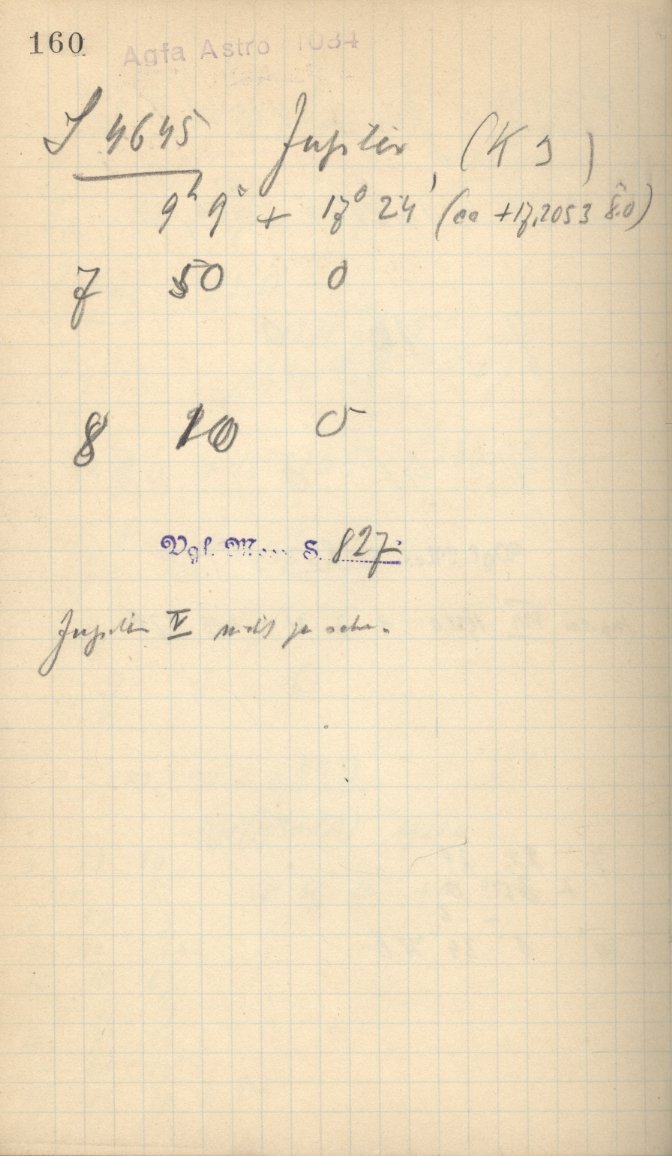 160
Agfa Astro 1034
S 4645 Jupiter (K 9)
9h 9° + 17° 24' (aa + 17,2053 8.0)
7 50 0
8 10 0
Vgl. M... S. 827
Jupiter V nicht zu sehen.